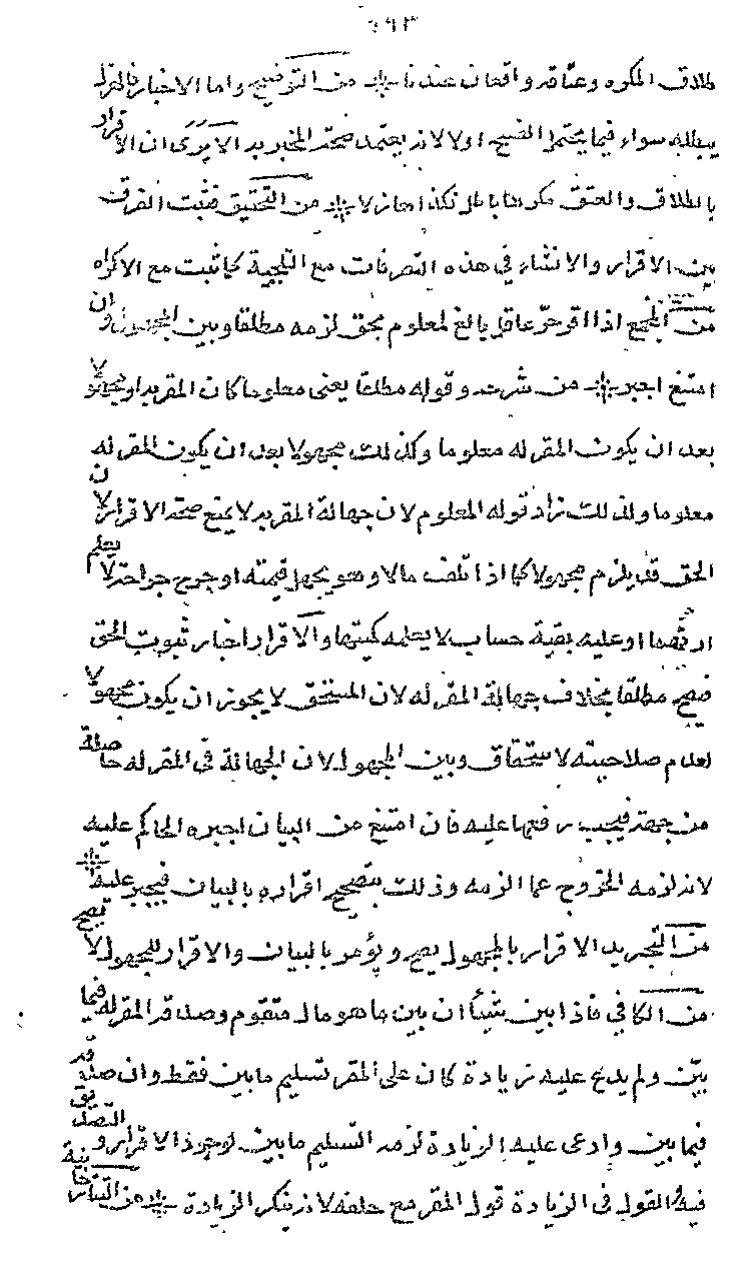 ٤٩٣
طلاق المكره وعتاقه واقعان عندنا من التوضيح واما الاخبار فالهزل
يبطله سواء فيما يحتمل الفسخ اولا لانه يعتمد صحة المخبر به الا يرى ان الاقرار
بالطلاق والعتق مكرها باطل فكذا هازلا من التحقيق فثبت الفرق
بين الاقرار والانشاء في هذه التصرفات مع التلجية كما ثبت مع الاكراه
من المجمع اذا اقر حر عاقل بالغ لمعلوم بحق لزمه مطلقا وبين المجهول وان
امتنع اجبر من شرحه وقوله مطلقا يعنى معلوما كان المقر به او مجهولا
بعد ان يكون المقر له معلوما وكذلك مجهولا بعد ان يكون المقر له
معلوما ولذلك زاد قوله المعلوم لان جهالة المقر به لا يمنع صحة الاقرار لان
الحق قد يلزم مجهولا كما اذا اتلف مالا وهو يجهل قيمته او جرح جراحة لا يعلم
ارشها او عليه بقية حساب لا يعلمه كميتها والاقرار اخبار ثبوت الحق
فيصح مطلقا بخلاف جهالة المقر له لان المستحق لا يجوز ان يكون مجهولا
لعدم صلاحيته لاستحقاق وبين المجهول لان الجهالة في المقر له حاصلة
من جهته فيجب رفعها عليه فان امتنع من البيان اجبره الحاكم عليه
لانه لزمه الخروج عما الزمه وذلك بتصحيح اقراره بالبيان فيجبر عليه
من التجريد الاقرار بالمجهول يصح ويؤمر بالبيان والاقرار للمجهول لا يصح
من الكافي فاذا بين شيئا ان بين ما هو مال متقوم وصدقه المقر له فيما
بيّن ولم يدع عليه زيادة كان على المقر تسليم ما بين فقط وان صدقه
فيما بين وادعى عليه الزيادة لزمه التسليم ما بين لوجود الاقرار والتصديق
فيه والقول في الزيادة قول المقر مع حلفه لانه ينكر الزيادة من التتارخانية